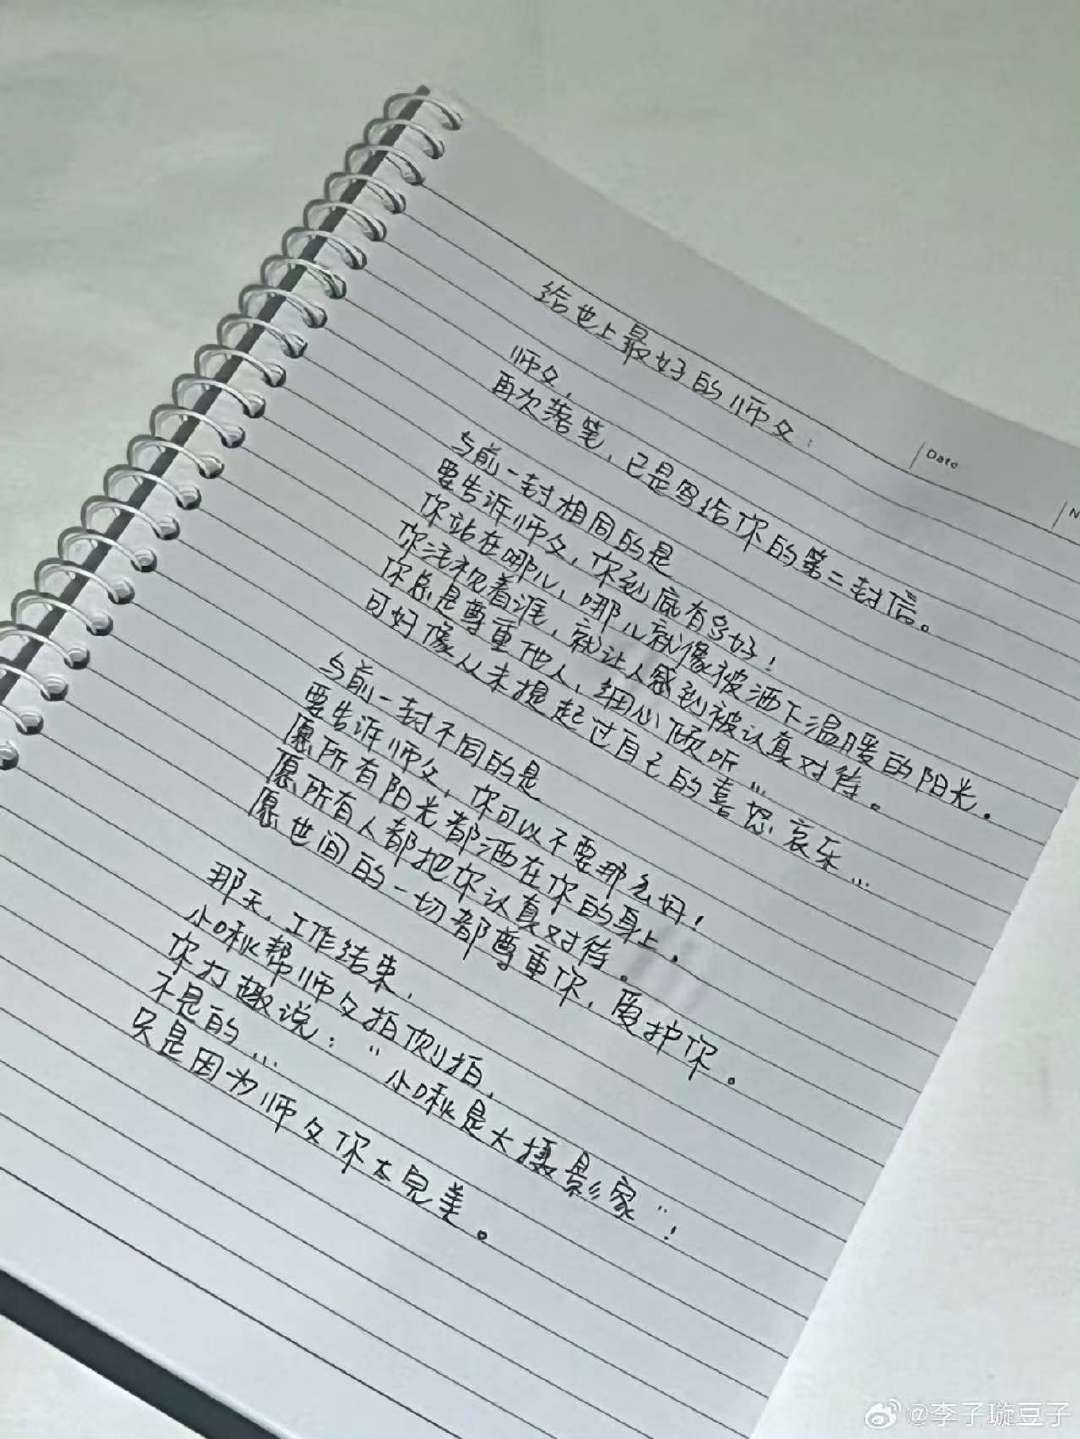 给世上最好的师父：
师父，
再次落笔，已是写给你的第二封信。
与前一封相同的是
要告诉师父，你到底有多好！
你站在哪儿，哪儿就像被洒下温暖的阳光，
你注视着谁，就让人感到被认真对待。
你总是尊重他人，细心倾听…
可好像从未提起过自己的喜怒哀乐…
与前一封不同的是
要告诉师父，你可以不要那么好！
愿所有阳光都洒在你的身上，
愿所有人都把你认真对待。
愿世间的一切都尊重你，爱护你。
那天，工作结束，
小啾帮师父拍侧拍，
你打趣说：“小啾是大摄影家”！
不是的…
只是因为师父你太完美。
Date
N
@李子璇豆子